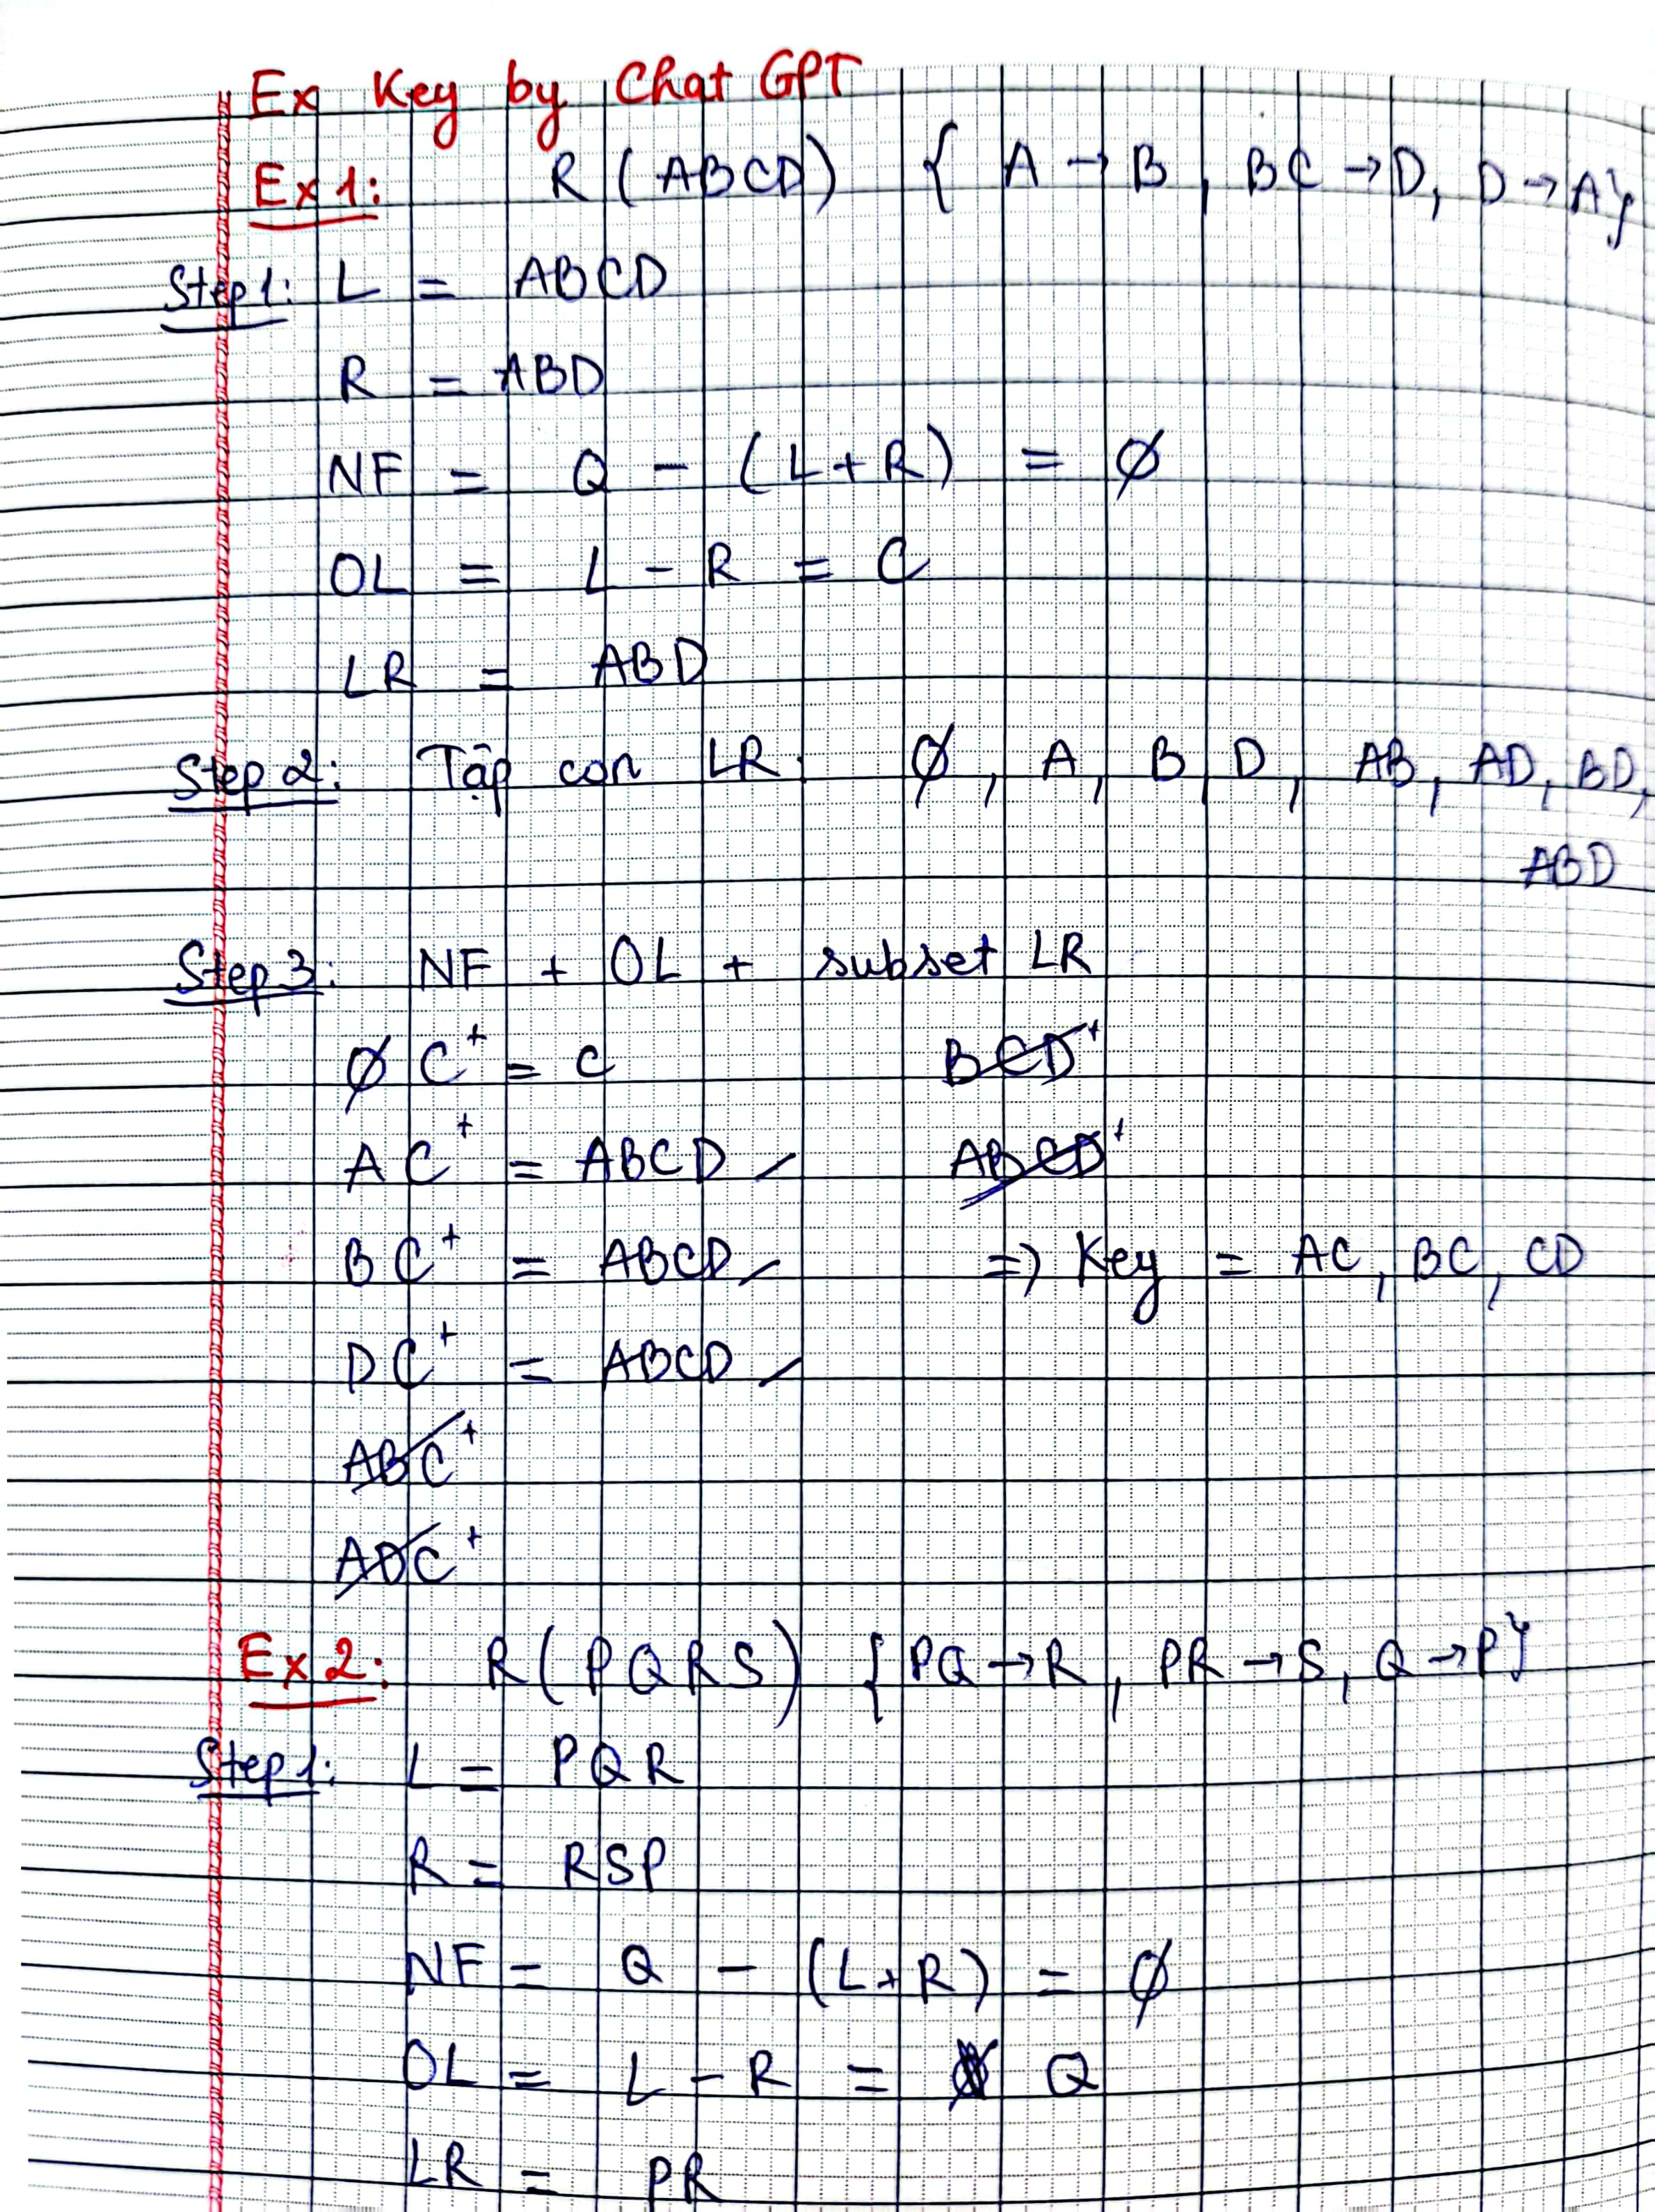 Ex Key by Chat GPT
Ex 1: R (ABCD) { A → B, BC → D, D → A}
Step 1: L = ABCD
R = ABD
NF = Q - (L+R) = ∅
OL = L - R = C
LR = ABD
Step 2: Tập con LR: ∅, A, B, D, AB, AD, BD,
ABD
Step 3: NF + OL + subset LR
∅ C⁺ = C
AC⁺ = ABCD ✓
BC⁺ = ABCD ✓
DC⁺ = ABCD ✓
ABC⁺
ADC⁺
BCD⁺
ABCD⁺
=> Key = AC, BC, CD
Ex 2: R(PQRS) {PQ → R, PR → S, Q → P}
Step 1: L = PQR
R = RSP
NF = Q - (L+R) = ∅
OL = L - R = Q
LR = PR